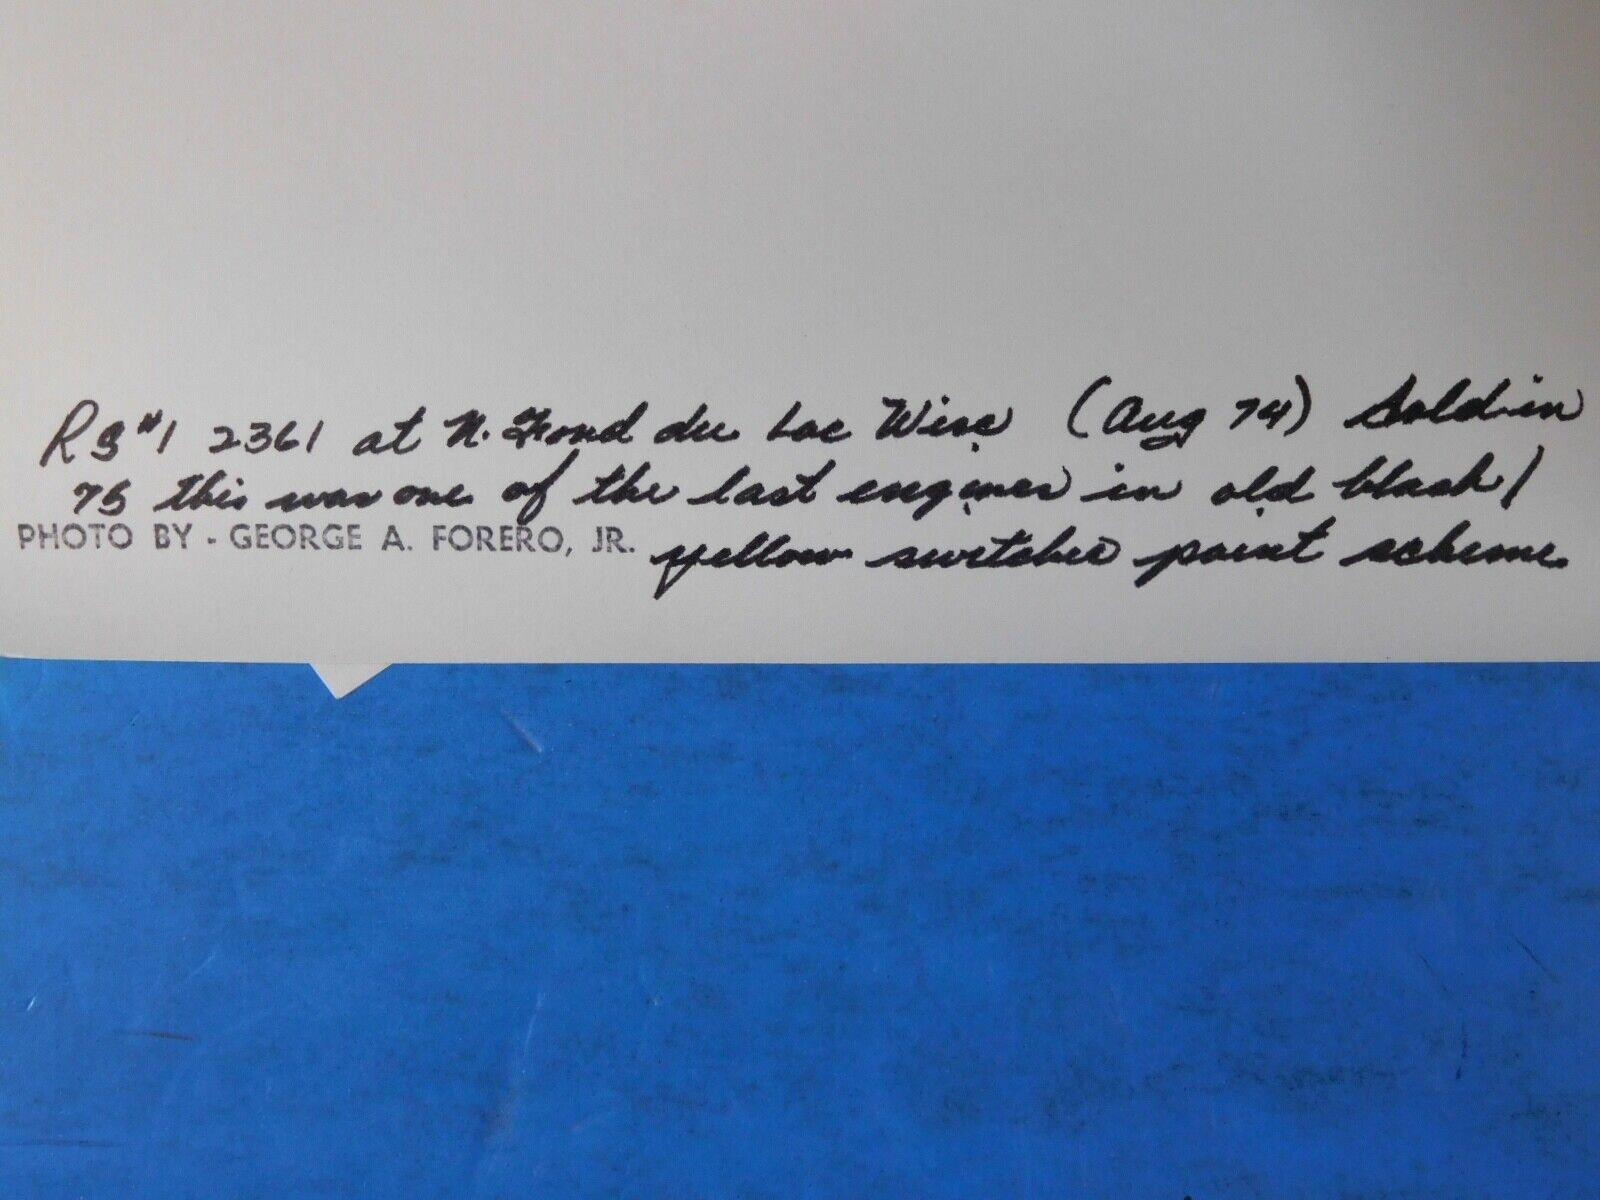 RS#1 2361 at N. Fond du Lac Wisc (Aug 74) Sold in
75 this was one of the last engines in old black/
PHOTO BY - GEORGE A. FORERO, JR. yellow switcher paint scheme.